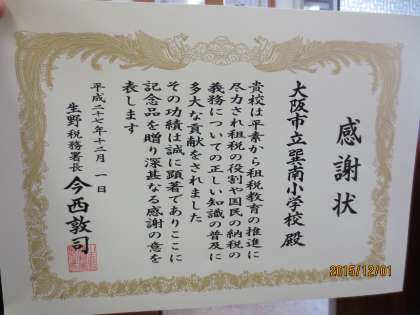 感謝状
大阪市立巽南小学校 殿
貴校は平素から租税教育の推進に
尽力され租税の役割や国民の納税の
義務についての正しい知識の普及に
多大な貢献をされました
その功績は誠に顕著でありここに
記念品を贈り深甚なる感謝の意を
表します
平成二十七年十二月 一日
生野税務署長 今西敦司
2015/12/01